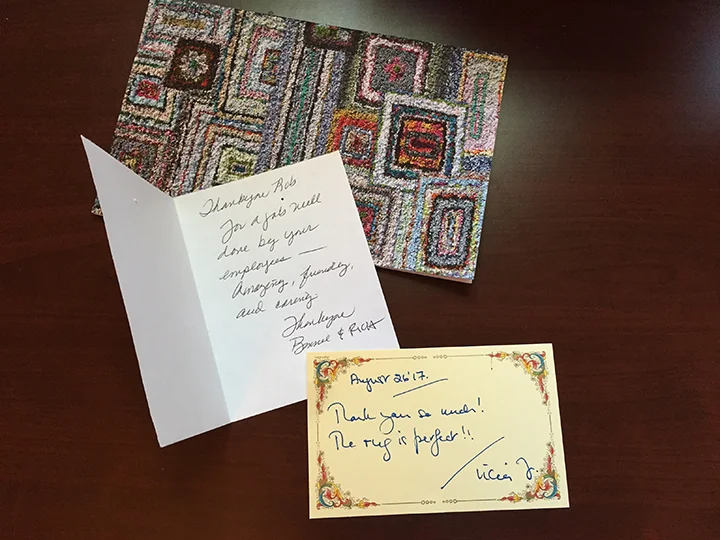 Thankyou Rob
for a job well
done by your
employees —
Amazing, friendly,
and caring
Thankyou
Bonnie & Rich
August 26'17.
Thank you so much!
The rug is perfect!!
J.